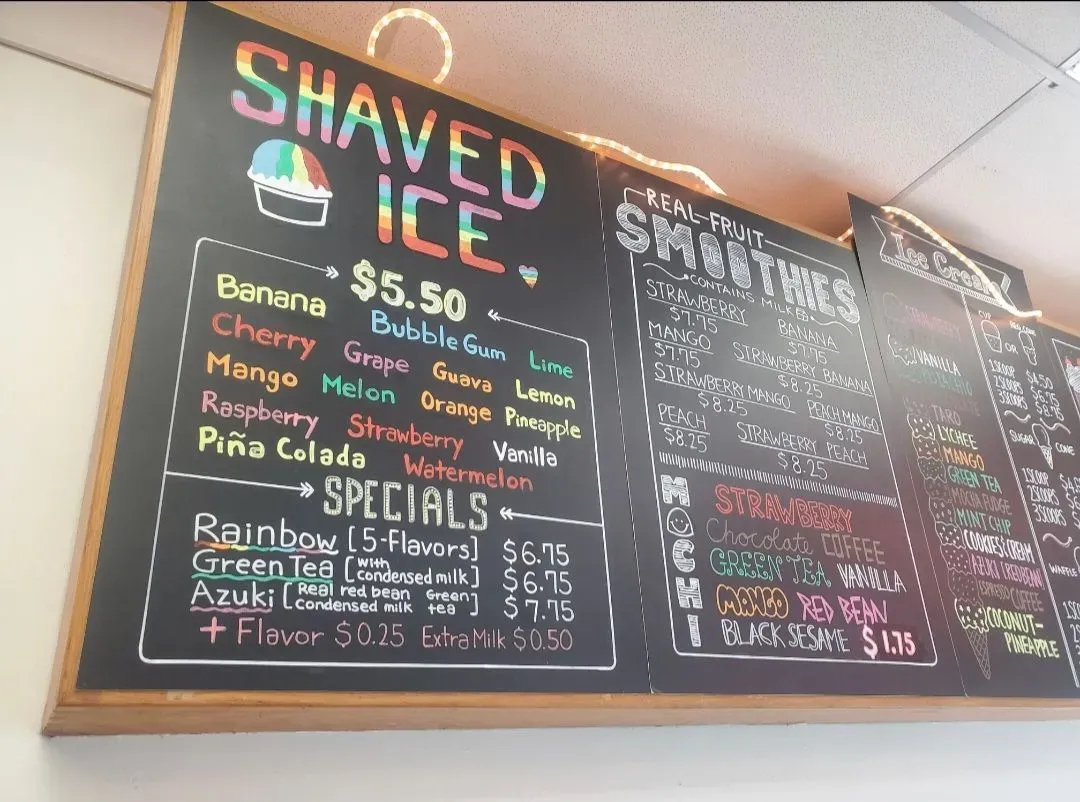 SHAVED
ICE
$5.50
Banana
Bubble Gum
Lime
Cherry
Grape
Guava
Lemon
Mango
Melon
Orange
Pineapple
Raspberry
Strawberry
Vanilla
Piña Colada
Watermelon
SPECIALS
Rainbow [5-Flavors] $6.75
Green Tea [with condensed milk] $6.75
Azuki [Real red bean Green tea condensed milk] $7.75
+ Flavor $0.25 Extra Milk $0.50
REAL-FRUIT
SMOOTHIES
CONTAINS MILK
STRAWBERRY
$7.75
BANANA
$7.75
MANGO
$7.75
STRAWBERRY BANANA
$8.25
STRAWBERRY MANGO
$8.25
PEACH MANGO
$8.25
PEACH
$8.25
STRAWBERRY PEACH
$8.25
MOCHI
STRAWBERRY
Chocolate COFFEE
GREEN TEA VANILLA
MANGO RED BEAN
BLACK SESAME $1.75
Ice Cream
STRAWBERRY
VANILLA
TARO
LYCHEE
MANGO
GREEN TEA
MOCHA FUDGE
MINT CHIP
COOKIES & CREAM
AZUKI (REDBEAN)
ESPRESSO COFFEE
COCONUT-
PINEAPPLE
CUP
OR
REG. CONE
1SCOOP $4.50
2SCOOPS
3SCOOPS
SUGAR CONE
1SCOOP
2SCOOPS
3SCOOPS
WAFFLE